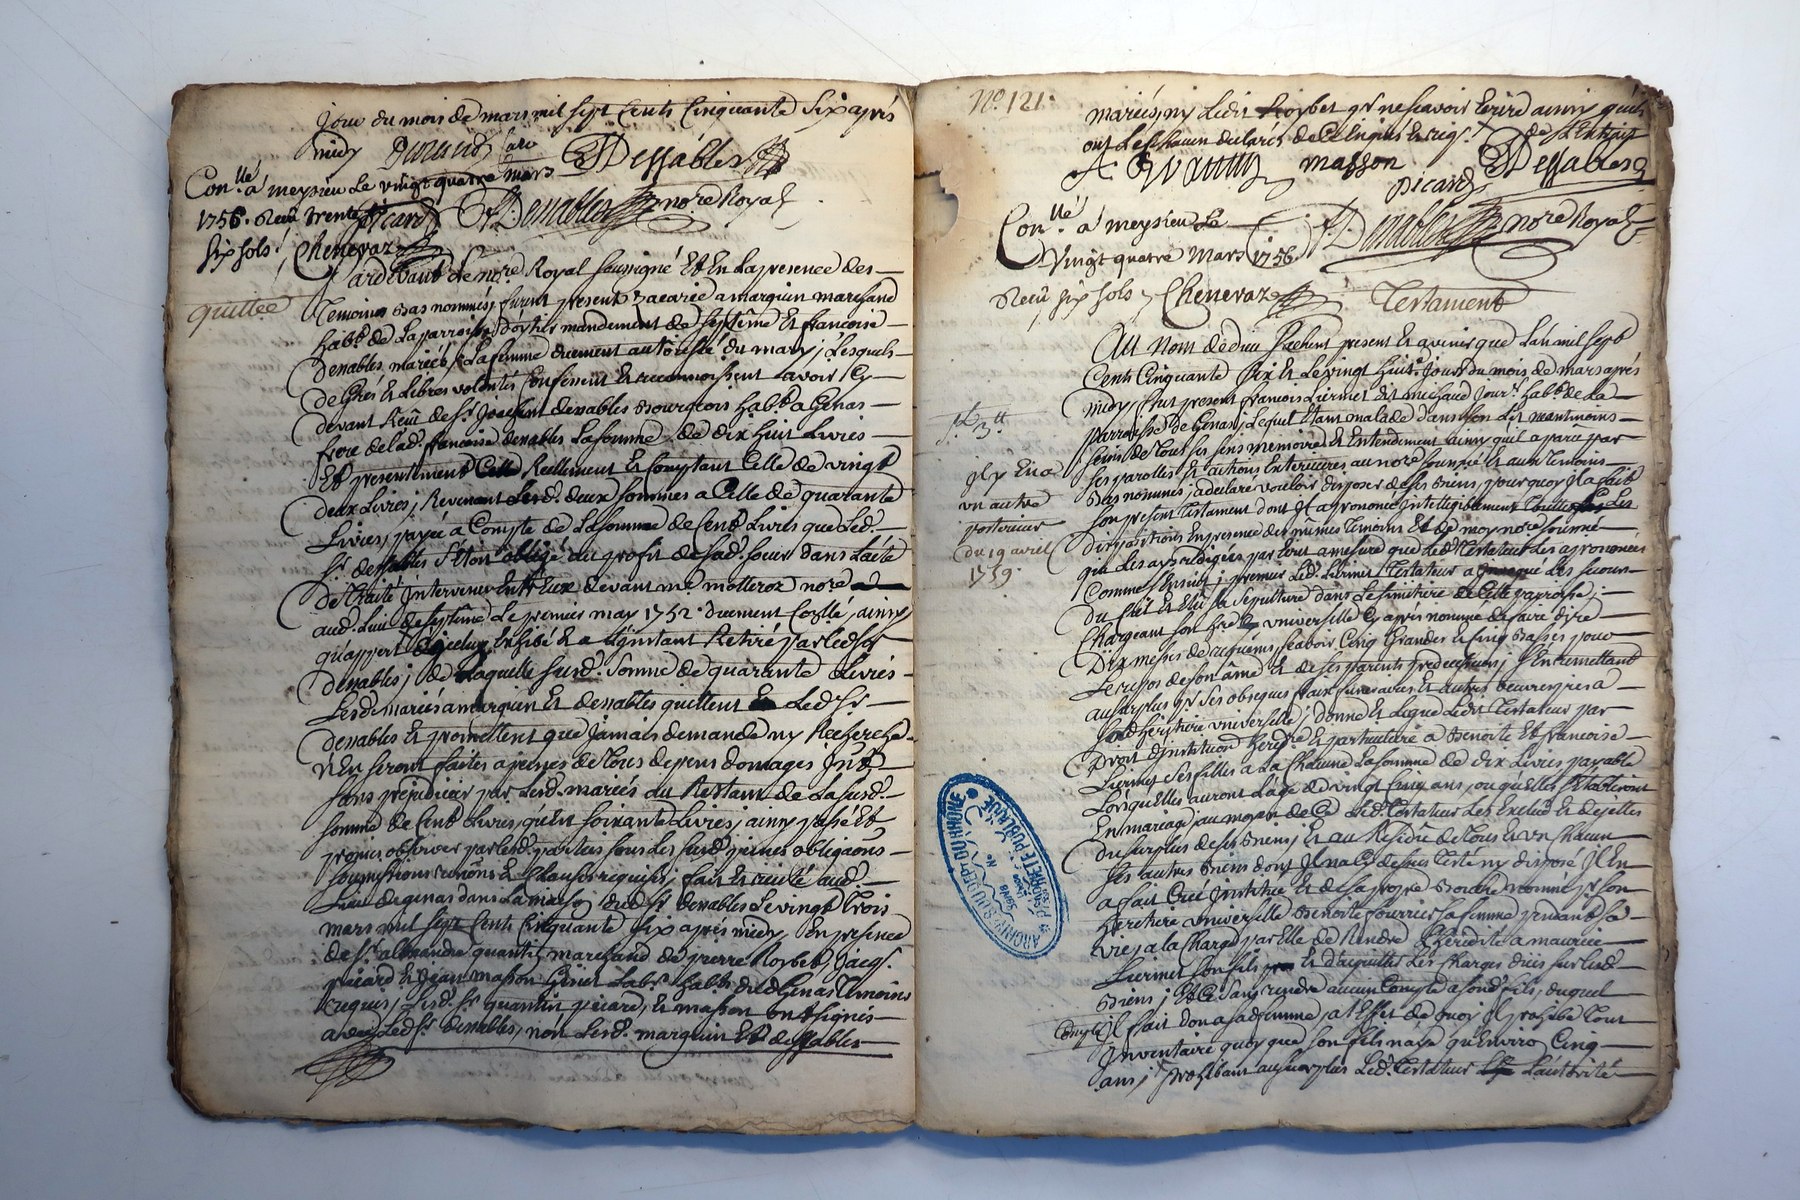 Jour du mois de mars mil sept Cents Cinquante Six après
midy Durand Caro Dessables
Con.llé a meysieu Le vingt quatre mars
1756. Receu trente picard Denables nore Royal
six sols / Chenevaz
Pardevant le nore Royal soussigné Et En La presence des
quittee
Temoins bas nommés furent present Zacarie amarquin marchand
habt. de La parroisse mandement de septême Et francoise
Denables mariés, La femme duement autorisée du mary ; Lesquels
De Grés Et Libres volontés Confessent Et reconnoissent avoir Cy
devant Receu de Sr. Joachim denables Bourgeois habt. a Genas
frere de lad. francoise denables La somme de dix huit Livres
Et presentement Reellement Et Comptant Celle de vingt
deux Livres ; Revenant Lesd. deux sommes a Celle de quarante
Livres, payée a Compte de La somme de Cent Livres que Led.
Sr. denables S'étoit obligé au profit de sad. soeur dans L'acte
De traité Intervenu Entr'Eux devant me. molleroz nore
aud. Lieu de septême Le premier may 1752. duement Conllé, ainsy
qu'appert Exhibé Et a L'Instant Retiré par led. Sr
denables ; de Laquelle susd. somme de quarante Livres
Lesd. mariés amarquin Et denables quittent Led. Sr.
denables Et promettent que Jamais demande ny Recherche
n'En seront faites a peines de Tous depens domages Int.
sans prejudicier par Lesd. mariés au Restant de La susd.
somme de Cent Livres, qu'Est soixante Livres ; ainsy passé Et
promis observer par lesd. parties sous Les susd. peines obligaons
soumissions renons Et Clauses requises ; fait Et recité aud.
Lieu de genas dans La maison dud. Sr. denables Le vingt Trois
mars mil sept Cents Cinquante Six après midy En presence
de Sr. alexandre quantin marchand de pierre Roybet, Jacqs.
picard Et Jean masson Labrs. habts. dud. Genas Temoins
requis ; Lesd. Sr. quantin picard, Et masson ont signés
avec Led. Sr. denables, non Lesd. marquin Et dessables
No. 121.
mariés, ny Ledit Roybet pr ne scavoir Ecrire ainsy qu'ils
ont Les chacun declarés de Ce Enquis Et reqs.
masson Dessables
picard
Con.llé a meysieu Le Denables nore Royal
Vingt quatre Mars 1756.
Receu six sols / Chenevaz
Testament
Au Nom de dieu Sachent present Et avenir que L'an mil sept
Cents Cinquante six Et Le vingt huit. Jour du mois de mars après
midy, fut present francois Liermet dit michaud Jourr. habt. de La
parroisse de Genas, Lequel Etant malade dans son Lit neantmoins
sains de Tous ses sens memoire Et Entendement ainsy quil a paru par
ses parolles Et actions Exterieures au nore soussigé Et aux Temoins
Il y En a
bas nommés ; a declaré vouloir disposer de ses Biens, pourquoy Il a fait
un autre
son present Testament dont Il a prononcé Intelligiblement toutes Les
posterieur
dispositions En presence des mêmes Temoins Et de moy nore soussigné
du 19 avril
qui Les ay redigées par Ecrit a mesure que Led. Testateur Les a prononcées
1759.
Comme s'Ensuit ; premier Led. Liermet Testateur a Les secours
du Ciel Et Elû sa sepulture dans Le simetiere de Cette parroisse ;
Chargeant son hre. universelle Cy après nommé de faire dire
Dix messes de requiems, scavoir Cinq Grandes et Cinq Basses pour
Le repos de son âme Et de ses parents predecesseurs ; S'En remettant
au surplus pr. Ses obseques frais funeraires Et autres oeuvres pies a
sad. heritiere universelle ; donne Et Legue Ledit Testateur par
Droit d'Institution heredre. Et particuliere a Benoite Et francoise
Liermet Ses filles a La Chacune La somme de dix Livres payable
Lorsquelles auront L'age de vingt Cinq ans, ou qu'Elles S'Etabliront
En mariage ; au moyen de Ce Led. Testateur Les Exclud Et dejettes
du surplus de ses biens ; Et au Residu de Tous Et un Chacun
Ses autres Biens dont Il n'a Cy dessus Testé ny disposé Il En
a fait Créé Institué Et de sa propre Bouche nommé pr. son
heritiere universelle Benoite fourrier sa femme pendant sa
vie ; a La Charge par Elle de Rendre L'heredité a maurice
Liermet son fils Et d'acquitter Les Charges dües sur Lesd.
Biens ; Et Ce sans rendre aucun Compte a sond. fils, duquel
Compte il fait don a sad. femme, a L'Effet de quoy Il prohibe Tout
Inventaire quoy que son fils n'aye qu'Enviro Cinq
ans ; prohibant au surplus Led. Testateur L'autorité
ARCHIVES DU DEPt DU RHONE
PROPRIETE PUBLIQUE